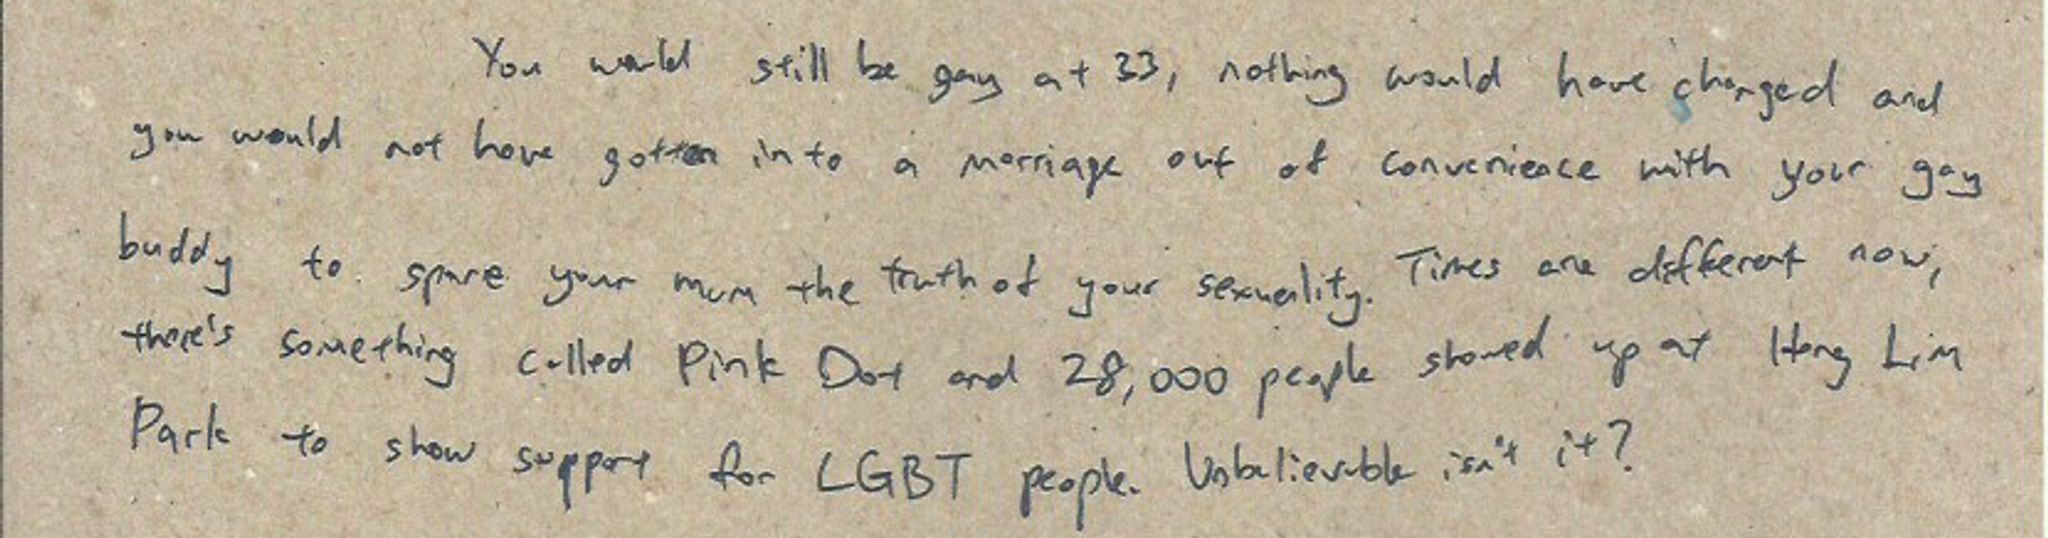 You would still be gay at 33, nothing would have changed and
you would not have gotten into a marriage out of convenience with your gay
buddy to spare your mum the truth of your sexuality. Times are different now,
there's something called Pink Dot and 28,000 people showed up at Hong Lim
Park to show support for LGBT people. Unbelievable isn't it?